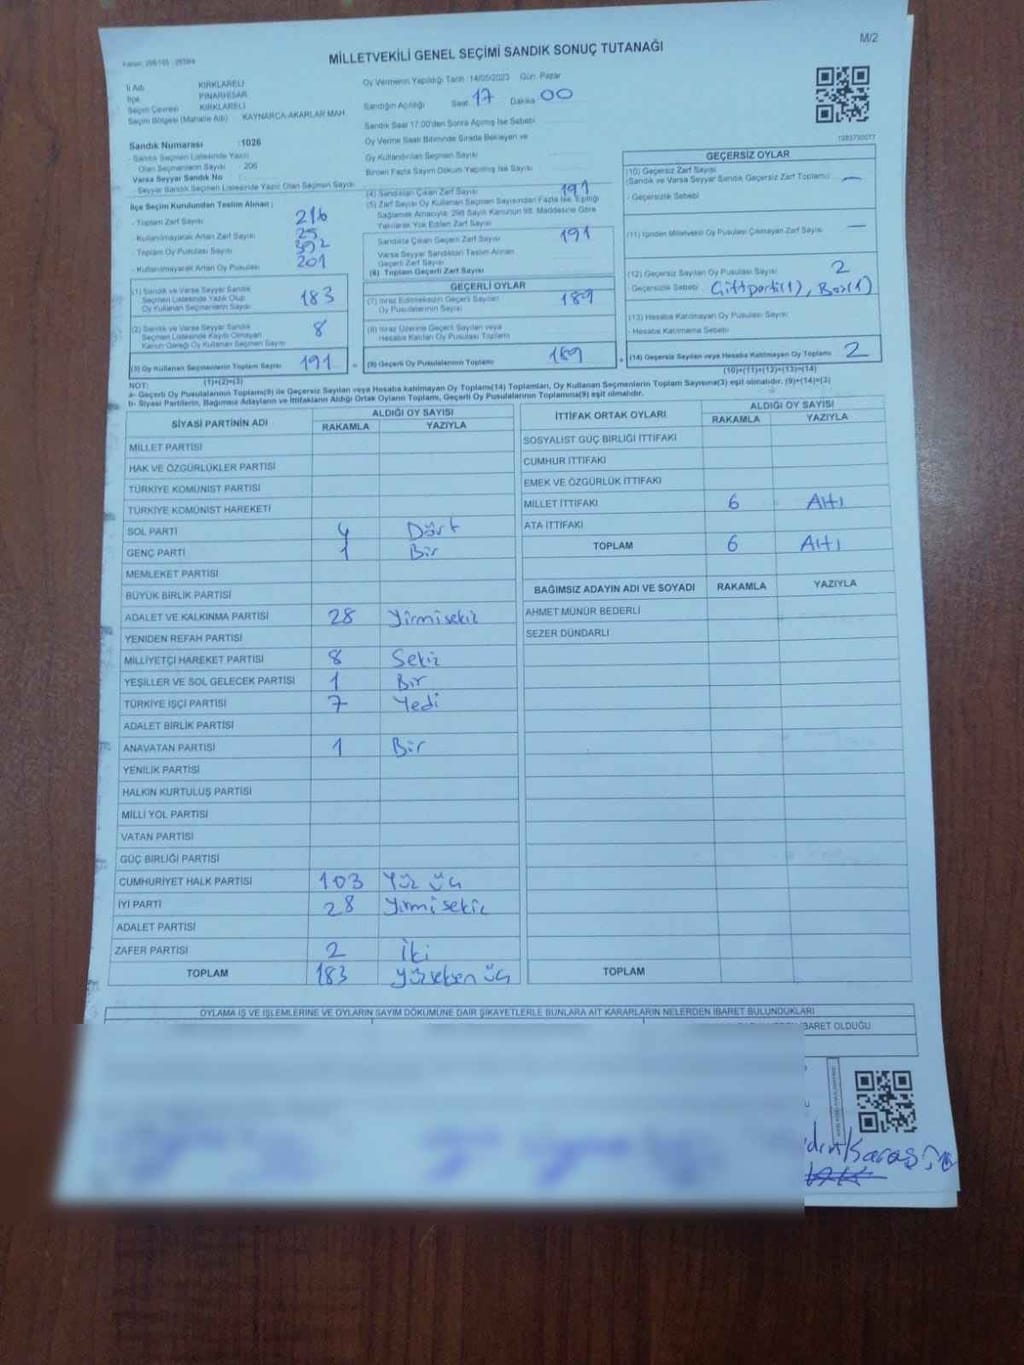 M/2
MİLLETVEKİLİ GENEL SEÇİMİ SANDIK SONUÇ TUTANAĞI
İl Adı KIRKLARELİ
İlçe PINARHİSAR
Seçim Çevresi KIRKLARELİ
Seçim Bölgesi (Mahalle Adı) KAYNARCA-AKARLAR MAH
Oy Vermenin Yapıldığı Tarih :14/05/2023 Gün: Pazar
Sandığın Açıldığı Saat 17 Dakika 00
Sandık Saat 17:00'den Sonra Açılmış İse Sebebi
Oy Verme Saati Bitiminde Sırada Bekleyen ve
Oy Kullandırılan Seçmen Sayısı
Birden Fazla Sayım Döküm Yapılmış İse Sayısı
Sandık Numarası :1026
- Sandık Seçmen Listesinde Yazılı
Olan Seçmenlerin Sayısı 206
Varsa Seyyar Sandık No
- Seyyar Sandık Seçmen Listesinde Yazılı Olan Seçmen Sayısı
İlçe Seçim Kurulundan Teslim Alınan ;
- Toplam Zarf Sayısı 216
- Kullanılmayarak Artan Zarf Sayısı 25
- Toplam Oy Pusulası Sayısı 392
- Kullanılmayarak Artan Oy Pusulası 201
(1) Sandık ve Varsa Seyyar Sandık
Seçmen Listesinde Yazılı Olup
Oy Kullanan Seçmenlerin Sayısı 183
(2) Sandık ve Varsa Seyyar Sandık
Seçmen Listesinde Kayıtlı Olmayan
Kanun Gereği Oy Kullanan Seçmen Sayısı 8
(3) Oy Kullanan Seçmenlerin Toplam Sayısı 191
(1)+(2)=(3)
(4) Sandıktan Çıkan Zarf Sayısı 191
(5) Zarf Sayısı Oy Kullanan Seçmen Sayısından Fazla İse, Eşitliği
Sağlamak Amacıyla; 298 Sayılı Kanunun 98. Maddesine Göre
Yakılarak Yok Edilen Zarf Sayısı
Sandıkta Çıkan Geçerli Zarf Sayısı 191
Varsa Seyyar Sandıktan Teslim Alınan
Geçerli Zarf Sayısı
(6) Toplam Geçerli Zarf Sayısı
GEÇERLİ OYLAR
(7) İtiraz Edilmeksizin Geçerli Sayılan
Oy Pusulası Sayısı 189
(8) İtiraz Üzerine Geçerli Sayılan veya
Hesaba Katılan Oy Pusulası Toplamı
(9) Geçerli Oy Pusulalarının Toplamı 189
GEÇERSİZ OYLAR
(10) Geçersiz Zarf Sayısı
(Sandık ve Varsa Seyyar Sandık Geçersiz Zarf Toplamı) —
- Geçersizlik Sebebi
(11) İçinden Milletvekili Oy Pusulası Çıkmayan Zarf Sayısı —
(12) Geçersiz Sayılan Oy Pusulası Sayısı 2
- Geçersizlik Sebebi Çiftparti(1), Boş(1)
(13) Hesaba Katılmayan Oy Pusulası Sayısı
- Hesaba Katılmama Sebebi
(14) Geçersiz Sayılan veya Hesaba Katılmayan Oy Toplamı 2
(10)+(11)+(12)+(13)=(14)
NOT:
a- Geçerli Oy Pusulalarının Toplamı(9) ile Geçersiz Sayılan veya Hesaba katılmayan Oy Toplamı(14) Toplamları, Oy Kullanan Seçmenlerin Toplam Sayısına(3) eşit olmalıdır. (9)+(14)=(3)
b- Siyasi Partilerin, Bağımsız Adayların ve İttifakların Aldığı Ortak Oyların Toplamı, Geçerli Oy Pusulalarının Toplamına(9) eşit olmalıdır.
SİYASİ PARTİNİN ADI ALDIĞI OY SAYISI
RAKAMLA YAZIYLA
MİLLET PARTİSİ
HAK VE ÖZGÜRLÜKLER PARTİSİ
TÜRKİYE KOMÜNİST PARTİSİ
TÜRKİYE KOMÜNİST HAREKETİ
SOL PARTİ 4 Dört
GENÇ PARTİ 1 Bir
MEMLEKET PARTİSİ
BÜYÜK BİRLİK PARTİSİ
ADALET VE KALKINMA PARTİSİ 28 Yirmisekiz
YENİDEN REFAH PARTİSİ
MİLLİYETÇİ HAREKET PARTİSİ 8 Sekiz
YEŞİLLER VE SOL GELECEK PARTİSİ 1 Bir
TÜRKİYE İŞÇİ PARTİSİ 7 Yedi
ADALET BİRLİK PARTİSİ
ANAVATAN PARTİSİ 1 Bir
YENİLİK PARTİSİ
HALKIN KURTULUŞ PARTİSİ
MİLLİ YOL PARTİSİ
VATAN PARTİSİ
GÜÇ BİRLİĞİ PARTİSİ
CUMHURİYET HALK PARTİSİ 103 Yüz üç
İYİ PARTİ 28 Yirmisekiz
ADALET PARTİSİ
ZAFER PARTİSİ 2 İki
TOPLAM 183 Yüzseksen üç
İTTİFAK ORTAK OYLARI ALDIĞI OY SAYISI
RAKAMLA YAZIYLA
SOSYALİST GÜÇ BİRLİĞİ İTTİFAKI
CUMHUR İTTİFAKI
EMEK VE ÖZGÜRLÜK İTTİFAKI
MİLLET İTTİFAKI 6 Altı
ATA İTTİFAKI
TOPLAM 6 Altı
BAĞIMSIZ ADAYIN ADI VE SOYADI RAKAMLA YAZIYLA
AHMET MÜNÜR BEDERLİ
SEZER DÜNDARLI
TOPLAM
OYLAMA İŞ VE İŞLEMLERİNE VE OYLARIN SAYIM DÖKÜMÜNE DAİR ŞİKAYETLERLE BUNLARA AİT KARARLARIN NELERDEN İBARET BULUNDUKLARI
BARET OLDUĞU